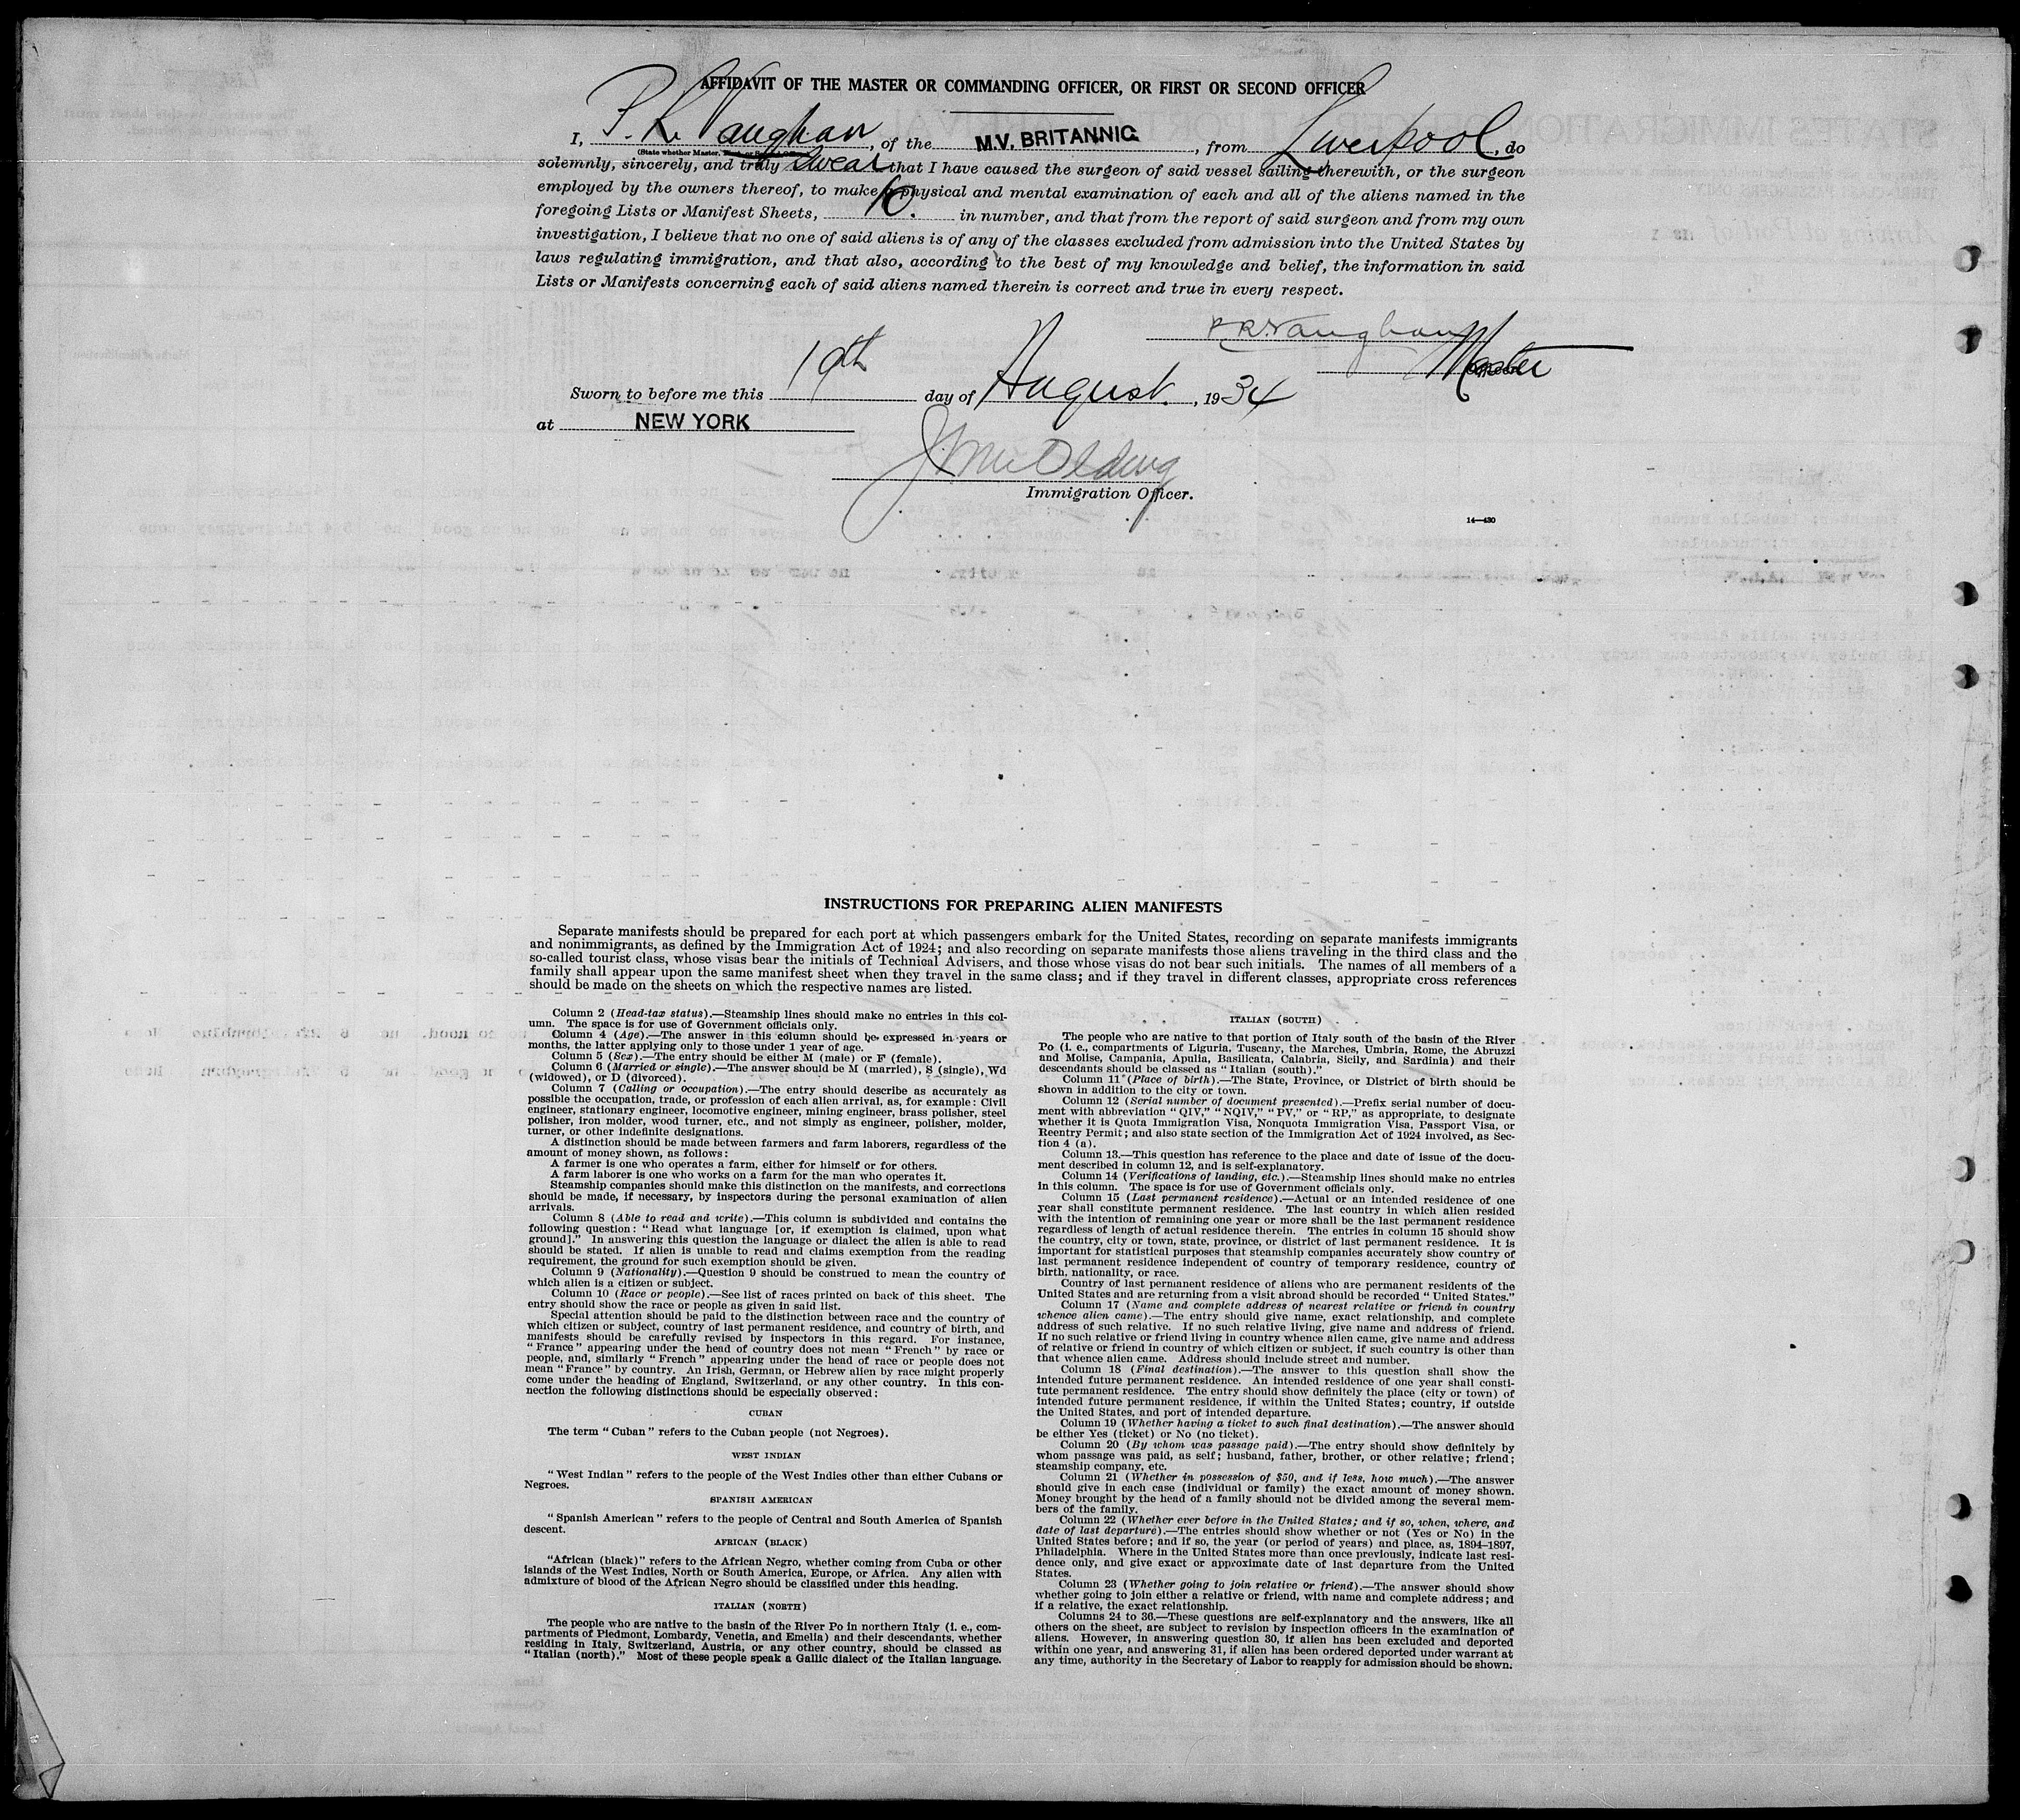 AFFIDAVIT OF THE MASTER OR COMMANDING OFFICER, OR FIRST OR SECOND OFFICER
I, P. R. Vaughan, of the M.V. BRITANNIC, from Liverpool, do
(State whether Master, First, or Second Officer)
solemnly, sincerely, and truly swear that I have caused the surgeon of said vessel sailing therewith, or the surgeon
employed by the owners thereof, to make a physical and mental examination of each and all of the aliens named in the
foregoing Lists or Manifest Sheets, 10. in number, and that from the report of said surgeon and from my own
investigation, I believe that no one of said aliens is of any of the classes excluded from admission into the United States by
laws regulating immigration, and that also, according to the best of my knowledge and belief, the information in said
Lists or Manifests concerning each of said aliens named therein is correct and true in every respect.
P R Vaughan
Master
Sworn to before me this 19th day of August, 1934
at NEW YORK
Immigration Officer.
14—430
INSTRUCTIONS FOR PREPARING ALIEN MANIFESTS
Separate manifests should be prepared for each port at which passengers embark for the United States, recording on separate manifests immigrants
and nonimmigrants, as defined by the Immigration Act of 1924; and also recording on separate manifests those aliens traveling in the third class and the
so-called tourist class, whose visas bear the initials of Technical Advisers, and those whose visas do not bear such initials. The names of all members of a
family shall appear upon the same manifest sheet when they travel in the same class; and if they travel in different classes, appropriate cross references
should be made on the sheets on which the respective names are listed.
Column 2 (Head-tax status).—Steamship lines should make no entries in this col-
umn. The space is for use of Government officials only.
Column 4 (Age).—The answer in this column should be expressed in years or
months, the latter applying only to those under 1 year of age.
Column 5 (Sex).—The entry should be either M (male) or F (female).
Column 6 (Married or single).—The answer should be M (married), S (single), Wd
(widowed), or D (divorced).
Column 7 (Calling or occupation).—The entry should describe as accurately as
possible the occupation, trade, or profession of each alien arrival, as, for example: Civil
engineer, stationary engineer, locomotive engineer, mining engineer, brass polisher, steel
polisher, iron molder, wood turner, etc., and not simply as engineer, polisher, molder,
turner, or other indefinite designations.
A distinction should be made between farmers and farm laborers, regardless of the
amount of money shown, as follows:
A farmer is one who operates a farm, either for himself or for others.
A farm laborer is one who works on a farm for the man who operates it.
Steamship companies should make this distinction on the manifests, and corrections
should be made, if necessary, by inspectors during the personal examination of alien
arrivals.
Column 8 (Able to read and write).—This column is subdivided and contains the
following question: "Read what language [or, if exemption is claimed, upon what
ground]." In answering this question the language or dialect the alien is able to read
should be stated. If alien is unable to read and claims exemption from the reading
requirement, the ground for such exemption should be given.
Column 9 (Nationality).—Question 9 should be construed to mean the country of
which alien is a citizen or subject.
Column 10 (Race or people).—See list of races printed on back of this sheet. The
entry should show the race or people as given in said list.
Special attention should be paid to the distinction between race and the country of
which citizen or subject, country of last permanent residence, and country of birth, and
manifests should be carefully revised by inspectors in this regard. For instance,
"France" appearing under the head of country does not mean "French" by race or
people, and, similarly "French" appearing under the head of race or people does not
mean "France" by country. An Irish, German, or Hebrew alien by race might properly
come under the heading of England, Switzerland, or any other country. In this con-
nection the following distinctions should be especially observed:
CUBAN
The term "Cuban" refers to the Cuban people (not Negroes).
WEST INDIAN
"West Indian" refers to the people of the West Indies other than either Cubans or
Negroes.
SPANISH AMERICAN
"Spanish American" refers to the people of Central and South America of Spanish
descent.
AFRICAN (BLACK)
"African (black)" refers to the African Negro, whether coming from Cuba or other
islands of the West Indies, North or South America, Europe, or Africa. Any alien with
admixture of blood of the African Negro should be classified under this heading.
ITALIAN (NORTH)
The people who are native to the basin of the River Po in northern Italy (i. e., com-
partments of Piedmont, Lombardy, Venetia, and Emelia) and their descendants, whether
residing in Italy, Switzerland, Austria, or any other country, should be classed as
"Italian (north)." Most of these people speak a Gallic dialect of the Italian language.
ITALIAN (SOUTH)
The people who are native to that portion of Italy south of the basin of the River
Po (i. e., compartments of Liguria, Tuscany, the Marches, Umbria, Rome, the Abruzzi
and Molise, Campania, Apulia, Basilicata, Calabria, Sicily, and Sardinia) and their
descendants should be classed as "Italian (south)."
Column 11 (Place of birth).—The State, Province, or District of birth should be
shown in addition to the city or town.
Column 12 (Serial number of document presented).—Prefix serial number of docu-
ment with abbreviation "QIV," "NQIV," "PV," or "RP," as appropriate, to designate
whether it is Quota Immigration Visa, Nonquota Immigration Visa, Passport Visa, or
Reentry Permit; and also state section of the Immigration Act of 1924 involved, as Sec-
tion 4 (a).
Column 13.—This question has reference to the place and date of issue of the docu-
ment described in column 12, and is self-explanatory.
Column 14 (Verifications of landing, etc.).—Steamship lines should make no entries
in this column. The space is for use of Government officials only.
Column 15 (Last permanent residence).—Actual or an intended residence of one
year shall constitute permanent residence. The last country in which alien resided
with the intention of remaining one year or more shall be the last permanent residence
regardless of length of actual residence therein. The entries in column 15 should show
the country, city or town, state, province, or district of last permanent residence. It is
important for statistical purposes that steamship companies accurately show country of
last permanent residence independent of country of temporary residence, country of
birth, nationality, or race.
Country of last permanent residence of aliens who are permanent residents of the
United States and are returning from a visit abroad should be recorded "United States."
Column 17 (Name and complete address of nearest relative or friend in country
whence alien came).—The entry should give name, exact relationship, and complete
address of such relative. If no such relative living, give name and address of friend.
If no such relative or friend living in country whence alien came, give name and address
of relative or friend in country of which citizen or subject, if such country is other than
that whence alien came. Address should include street and number.
Column 18 (Final destination).—The answer to this question shall show the
intended future permanent residence. An intended residence of one year shall consti-
tute permanent residence. The entry should show definitely the place (city or town) of
intended future permanent residence, if within the United States; country, if outside
the United States, and port of intended departure.
Column 19 (Whether having a ticket to such final destination).—The answer should
be either Yes (ticket) or No (no ticket).
Column 20 (By whom was passage paid).—The entry should show definitely by
whom passage was paid, as self; husband, father, brother, or other relative; friend;
steamship company, etc.
Column 21 (Whether in possession of $50, and if less, how much).—The answer
should give in each case (individual or family) the exact amount of money shown.
Money brought by the head of a family should not be divided among the several mem-
bers of the family.
Column 22 (Whether ever before in the United States; and if so, when, where, and
date of last departure).—The entries should show whether or not (Yes or No) in the
United States before; and if so, the year (or period of years) and place, as, 1894–1897,
Philadelphia. Where in the United States more than once previously, indicate last resi-
dence only, and give exact or approximate date of last departure from the United
States.
Column 23 (Whether going to join relative or friend).—The answer should show
whether going to join either a relative or friend, with name and complete address; and
if a relative, the exact relationship.
Columns 24 to 36.—These questions are self-explanatory and the answers, like all
others on the sheet, are subject to revision by inspection officers in the examination of
aliens. However, in answering question 30, if alien has been excluded and deported
within one year, and answering 31, if alien has been ordered deported under warrant at
any time, authority in the Secretary of Labor to reapply for admission should be shown.